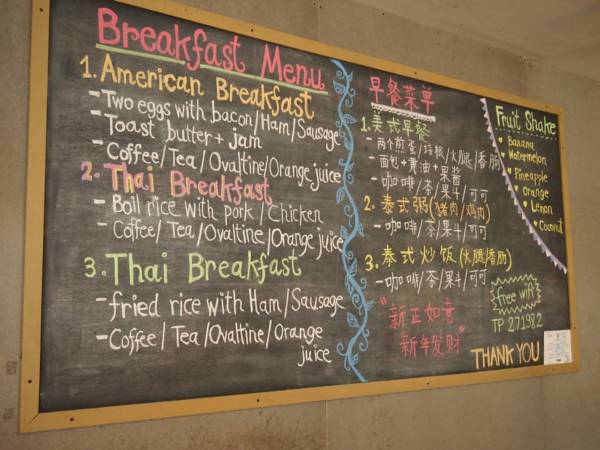 Breakfast Menu
1. American Breakfast
- Two eggs with bacon/Ham/Sausage
- Toast butter + jam
- Coffee/Tea/Ovaltine/Orange juice
2. Thai Breakfast
- Boil rice with pork/Chicken
- Coffee/Tea/Ovaltine/Orange juice
3. Thai Breakfast
- fried rice with Ham/Sausage
- Coffee/Tea/Ovaltine/Orange
juice
早餐菜单
1. 美式早餐
- 两个煎蛋/培根/火腿/香肠
- 面包+黄油+果酱
- 咖啡/茶/果汁/可可
2. 泰式粥(猪肉/鸡肉)
- 咖啡/茶/果斗/可可
3. 泰式炒饭(火腿/香肠)
- 咖啡/茶/果斗/可可
"新正如意
新年发财"
Fruit Shake
Banana
Watermelon
Pineapple
Orange
Lemon
Coconut
free wifi
TP 271982
THANK YOU